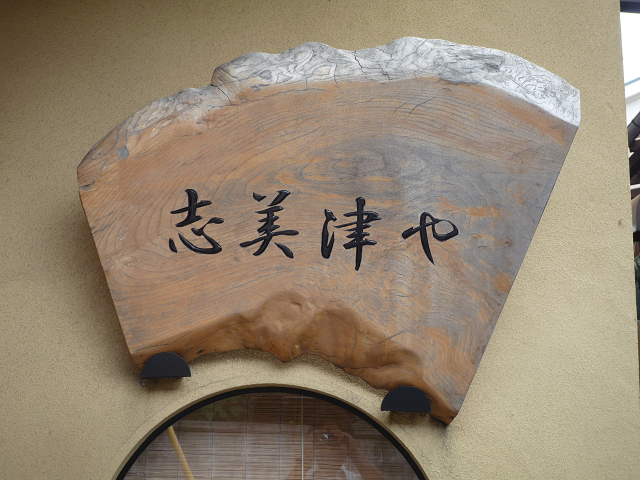 志美津や